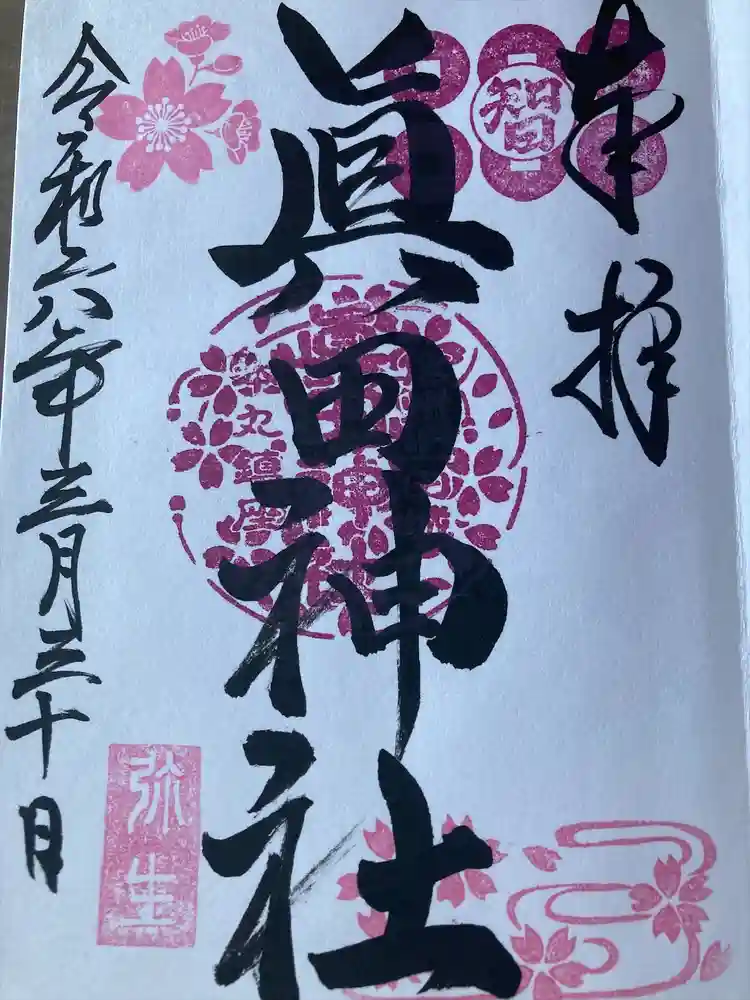 奉拝
智
眞田神社
眞田神社
丸鎮座
令和六年三月三十日
弥生